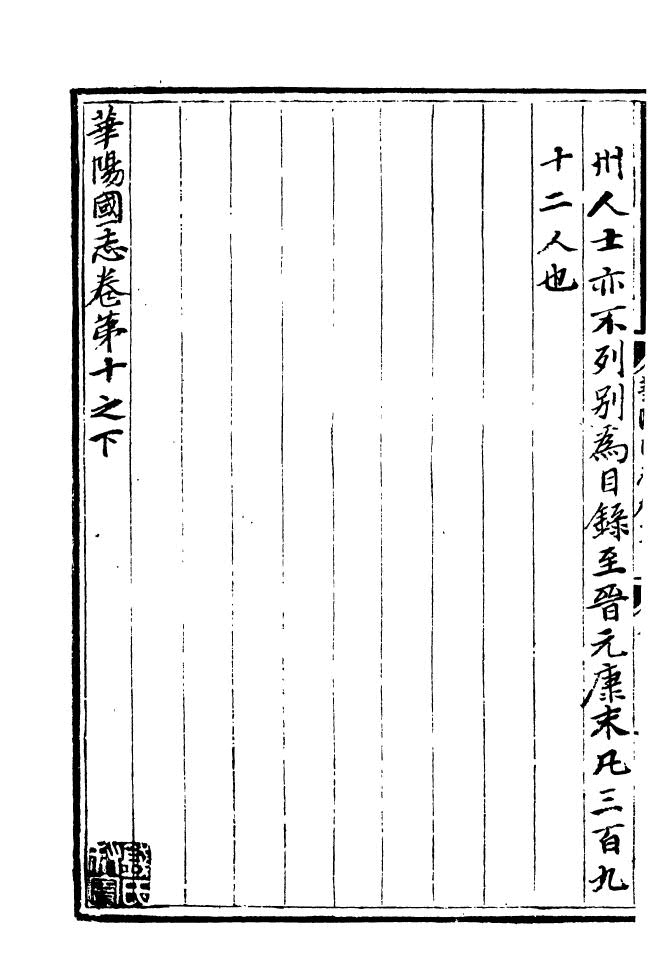 州人士亦不列别為目錄至晉元康末凡三百九
十二人也
華陽國志卷第十之下